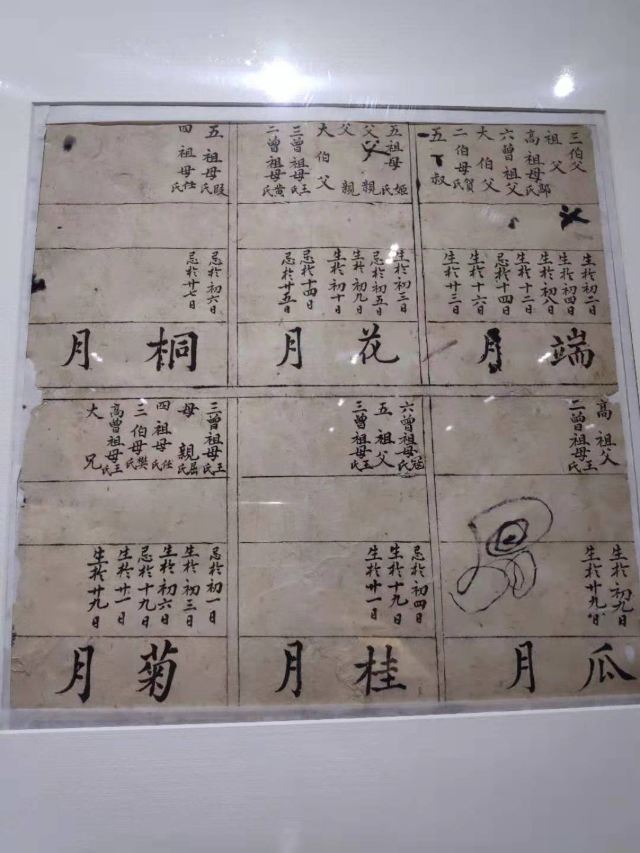 三伯父
祖父
高祖母氏
六曾祖父
大伯父
二伯母賀氏
五丁叔
生於初二日
生於初四日
生於初八日
生於十二日
忌於十四日
生於十六日
生於廿三日
端月
五祖母姬氏
父親
父親
大伯父
三曾祖母王氏
二曾祖母黄氏
生於初三日
忌於初五日
生於初九日
生於初十日
忌於十四日
忌於廿五日
花月
五祖母段氏
四祖母任氏
忌於初六日
忌於廿七日
桐月
高祖父
二曾祖母王氏
生於初九日
生於廿九日
瓜月
六曾祖母氏
五祖父
三曾祖母王氏
忌於初四日
生於十九日
生於廿一日
桂月
三曾祖母王氏
母親屈氏
四祖母任氏
三伯母樊氏
高曾祖母王氏
大兄
忌於初一日
生於初三日
生於初六日
忌於十九日
生於廿一日
生於廿九日
菊月